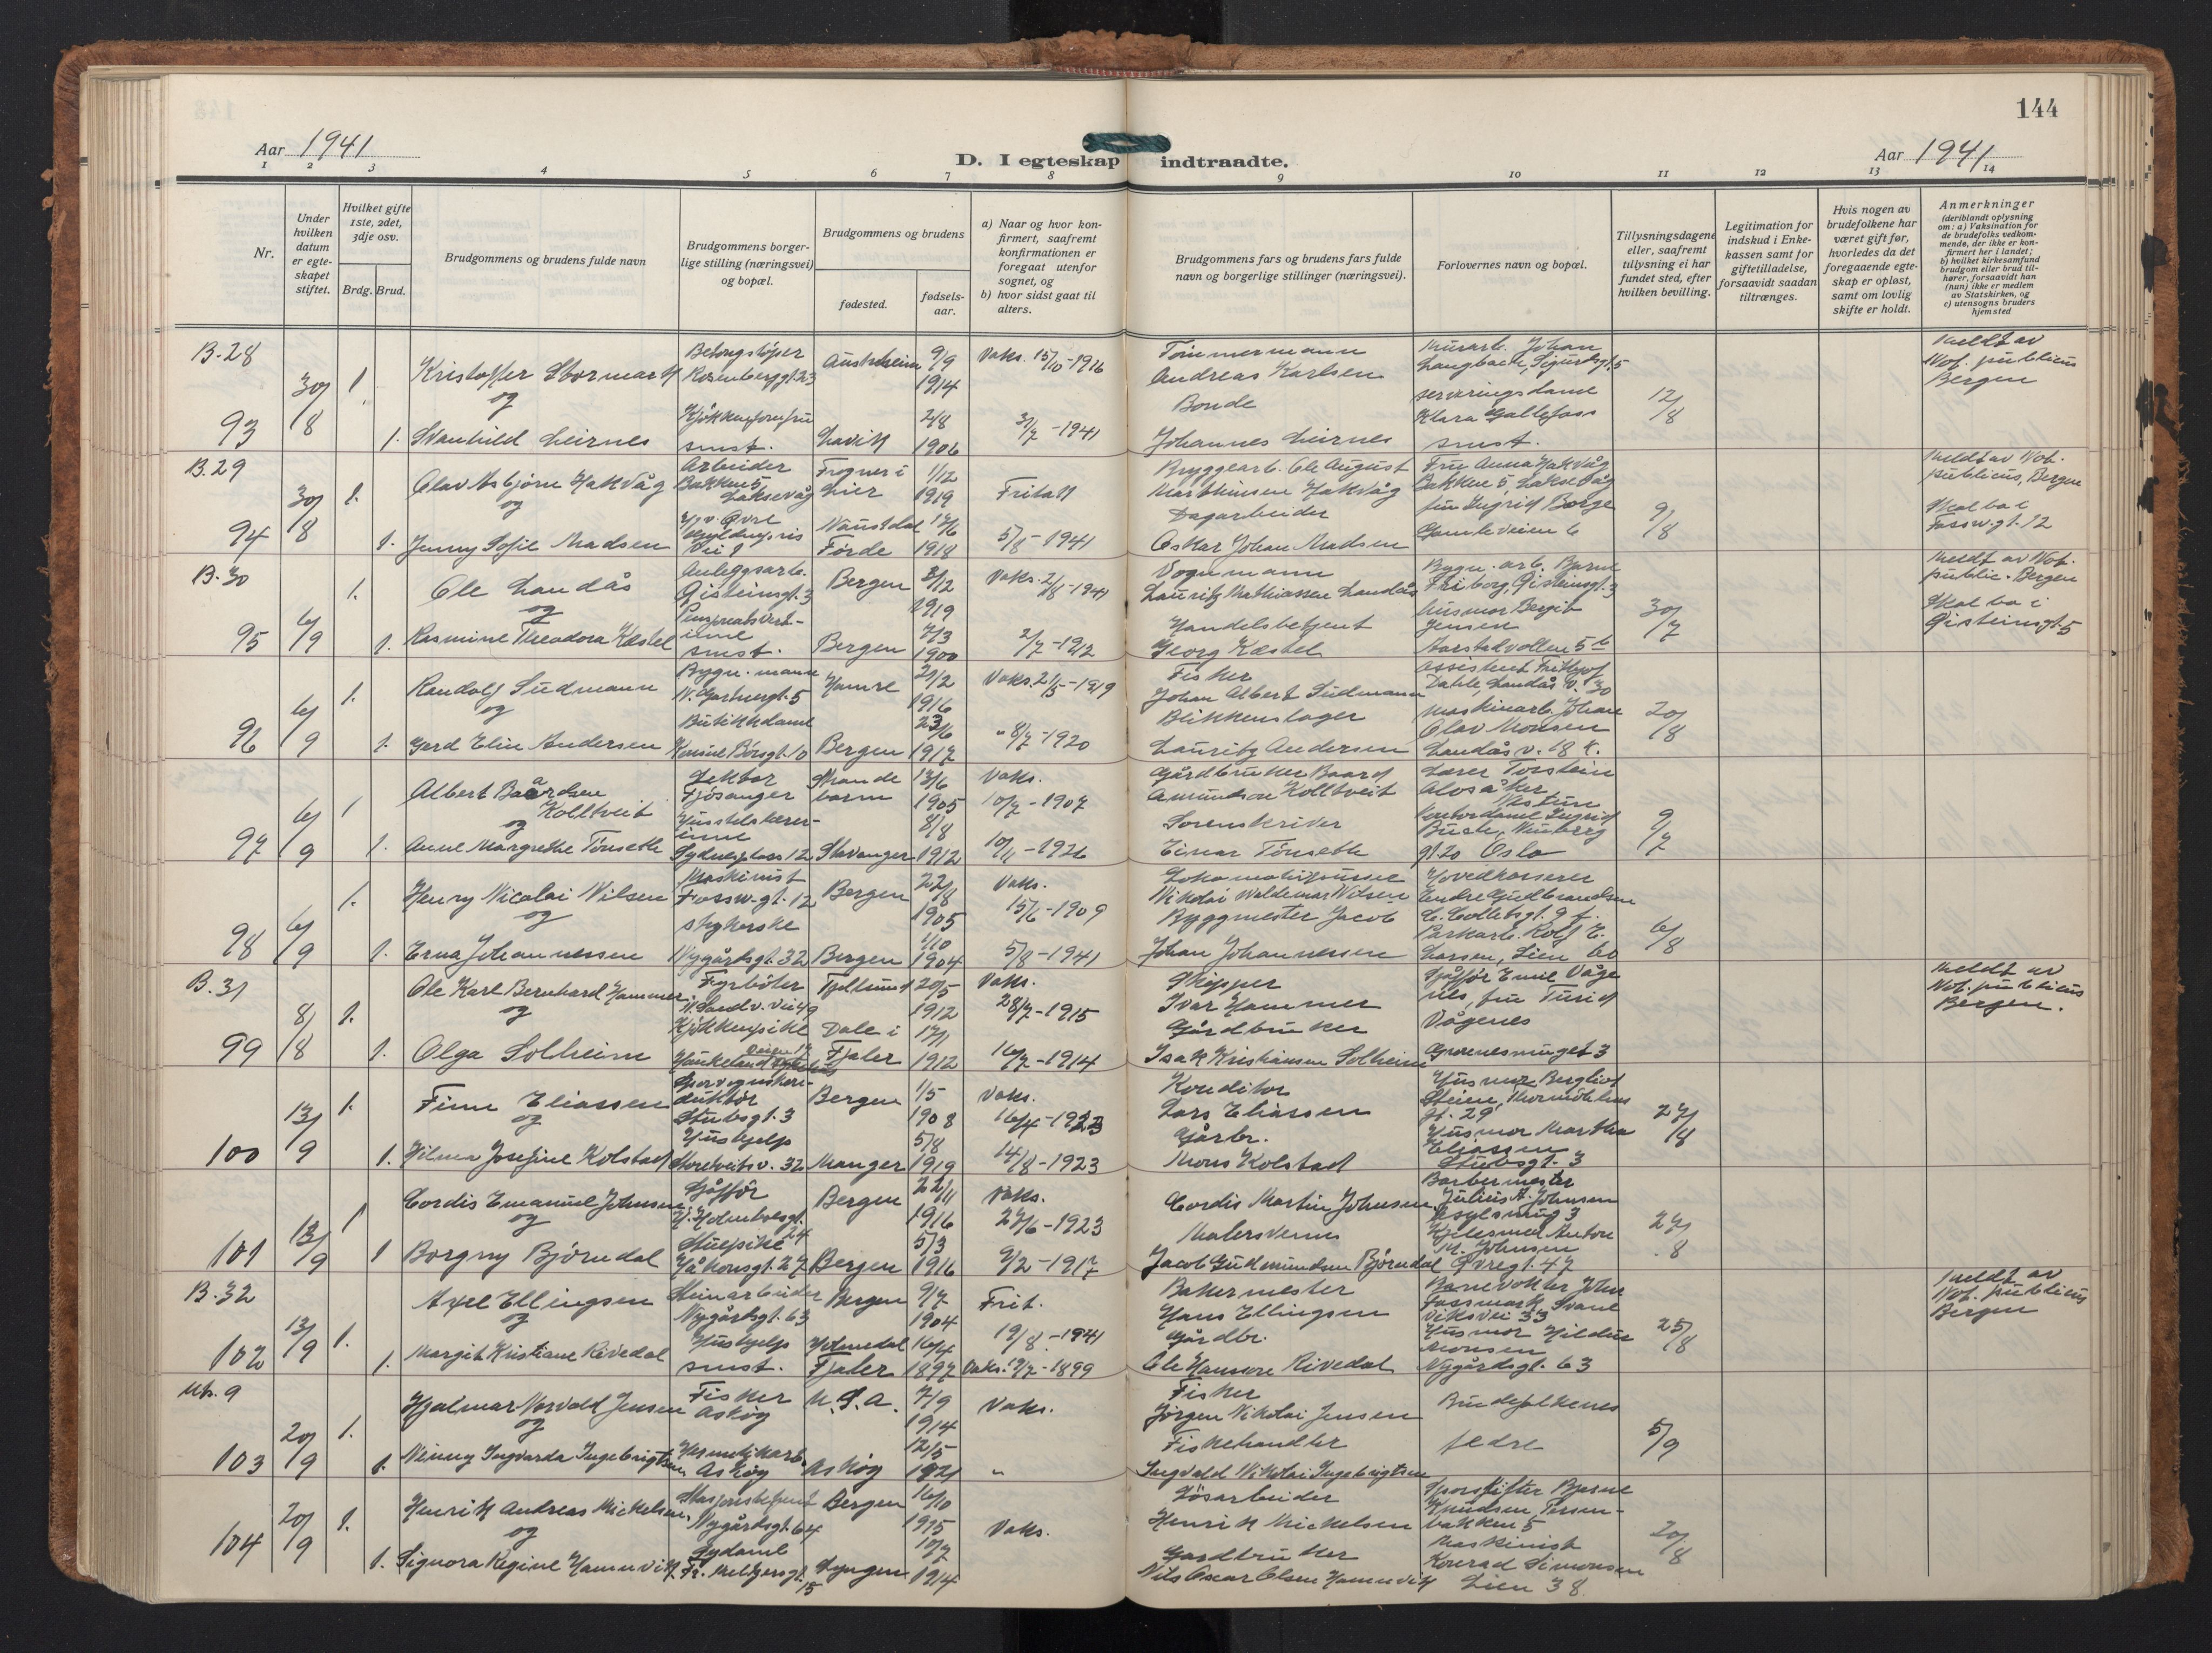 144
Aar 1941
D. I egteskap indtraadte.
Aar 1941
1 2 3 4 5 6 7 8 9 10 11 12 13 14
Nr.
Under hvilken datum er egteskapet stiftet.
Hvilket gifte 1ste, 2det, 3dje osv.
Brdg. Brud.
Brudgommens og brudens fulde navn
Brudgommens borgerlige stilling (næringsvei) og bopæl.
Brudgommens og brudens
fødested.
fødselsaar.
a) Naar og hvor konfirmert, saafremt konfirmationen er foregaat utenfor sognet, og
b) hvor sidst gaat til alters.
Brudgommens fars og brudens fars fulde navn og borgerlige stillinger (næringsvei).
Forlovernes navn og bopæl.
Tillysningsdagene eller, saafremt tillysning ei har fundet sted, efter hvilken bevilling.
Legitimation for indskud i Enkekassen samt for giftetilladelse, forsaavidt saadan tiltrænges.
Hvis nogen av brudefolkene har været gift før, hvorledes da det foregaaende egteskap er opløst, samt om lovlig skifte er holdt.
Anmerkninger
(deriblandt oplysning om: a) Vaksination for de brudefolks vedkommende, der ikke er konfirmert her i landet; b) hvilket kirkesamfund brudgom eller brud tilhører, forsaavidt han (hun) ikke er medlem av Statskirken, og c) utensogns bruders hjemsted
B.28
93 30/8 1. Kristoffer Stormark Betongstøper Rosenberggt. 23 Austrheim 9/9 1914 Vaks. 15/10-1916 Tømmermann Andreas Karlsen Murarb. Johan Langbach, Sigurdsgt. 5 12/8 Meldt av Not. publicus Bergen
og
1. Svanhild Leirnes Kjøkkenjomfru smst. Lavik 2/8 1906 31/7-1941 Bonde Johannes Leirnes serveringsdame Klara Gallefoss smst.
B.29
94 30/8 1. Olav Asbjørn Hakvåg Arbeider Bakken 5 Laksevåg Frogner i Lier 1/12 1919 Fritak Bryggearb. Ole August Marthinsen Hakvåg Fru Anna Hakvåg Bakken 5 Laksevåg 9/8 Meldt av Not. publicus, Bergen
og
1. Jenny Sofie Madsen Naustdal Førde 1918 5/8-1941 Dagarbeider Oskar Johan Madsen fru Ingrid Borge Gamleveien 6 Skal bo i Fossw.gt. 12
B.30
95 6/9 1. Ole Landås Anleggsarb. Gisteinsgt. 3 Bergen 3/12 1919 Vaks. 2/8-1941 Vognmann Lauritz Mathiassen Landås Bygn. arb. Bjarne Friborg, Gisteinsgt. 3 30/7 Meldt av Not. public. Bergen
og
1. Rasmine Theodora Kæstel smst. Bergen 7/3 1900 2/7-1922 Handelsbetjent Georg Kæstel husmor Bergit Jensen Aarstadvollen 5 b Skal bo i Gisteinsgt. 5
96 6/9 1. Randolf Sudmann Bygn. mann N. Gartnergt. 5 Hamre 21/2 1916 Vaks. 21/5-1919 Fisker Johan Albert Sudmann Assistent Frithjof Dahle, Landås v. 30 20/8
og
1. Gerd Elin Andersen Butikkdame Konsul Børsgt. 10 Bergen 23/6 1917 " 8/7-1920 Blikkenslager Lauritz Andersen Maskinarb. Johan Olav Monsen Landås v. 18 K.
97 6/9 1 Albert Baardsen Kolltveit Lektor Fjøsanger Strandebarm 13/6 1905 Vaks. 10/7-1907 Gårdbruker Baard Amundson Kolltveit Lærer Torstein Alvsåker Nestun 9/7
og
1. Anne Margrethe Tønseth Husstellærerinne Sydnesplass 12 Stavanger 8/8 1912 10/11-1926 Sorenskriver Einar Tønseth kontordame Ingrid Buch, gt. 20 Oslo
98 6/9 1. Henry Nicolai Nilsen Maskinist Fossw.gt. 12 Bergen 22/8 1905 Vaks. 15/6-1909 Nikolai Waldemar Nilsen Hovedkasserer Endre Gudbrandsen C. Colletsgt. 9 f. 6/8
og
1. Erna Johannessen strykerske Nygårdsgt. 32 Bergen 1/10 1904 5/8-1941 Byggmester Jacob Johan Johannessen Parkarb. Rolf E. Larsen, Lien 60
B.31
99 8/8 1. Ole Karl Bernhard Hammer Fyrbøter N. Sandv. vei 49 Fjellsund 20/5 1912 Vaks. 28/7-1915 Skipper Ivar Hammer Sjåffør Emil Vågenes, fru Turid Vågenes Meldt av Not. publicus Bergen.
og
1. Olga Solheim Kjøkkenpike Haukelandsveien Dale i Fjaler 17/1 1912 16/7-1914 Gårdbruker Isak Kristiansen Solheim
100 13/9 1. Finn Eliassen Sporvognskonduktør Stubsgt. 3 Bergen 1/5 1908 Vaks. 16/4-1923 Konditor Lars Eliassen Husmor Bergliot Steien, Thormøhlens gt. 29 27/8
og
1. Hilma Josefine Kolstad Hushjelp Storetveitsv. 32 Manger 5/8 1919 14/8-1923 Gårbr. Mons Kolstad Husmor Martha Eliassen Stubsgt. 3
101 13/9 1 Cordis Emanuel Johnsen Sjåffør H. Holmboesgt. 24 Bergen 22/11 1916 Vaks. 27/6-1923 Cordis Martin Johnsen Barbermester Julius A. Johnsen Asylsmug 3 27/8
og
1 Borgny Bjørndal Stuepike Håkonsgt. 27 Bergen 5/3 1916 9/2-1917 Malersvenn Jacob Gudmundsen Bjørndal Kjelesmed Anton M. Johnsen Øvregt. 47
B.32
102 13/9 1. Axel Ellingsen Steinarbeider Nygårdsgt. 63 Bergen 9/7 1904 Frit. 19/8-1941 Bakermester Hans Ellingsen Banevokter John Fossmark Svaneviksvei 33 25/8 Meldt av Not. publicus Bergen
og
1. Margit Kristiane Rivedal Hushjelp smst. Holmedal Fjaler 16/4 1897 Vaks. 19/7-1899 Gårdbr. Ole Hansson Rivedal Husmor Hildur Monsen Nygårdsgt. 63
Utb. 9
103 20/9 1. Hjalmar Norvald Jensen Fisker Askøy U.S.A. 7/9 1914 Vaks. Fisker Jørgen Nikolai Jensen Brudefolkenes 5/9
og
1. Ninny Ingvarda Ingebrigtsen Hermetikkarb. Askøy Askøy 12/5 1921 " Fiskehandler Ingvald Nikolai Ingebrigtsen fedre
104 20/9 1. Henrik Andreas Mickelsen Stasjonsbetjent Nygårdsgt. 64 Bergen 16/10 1915 Vaks. Løsarbeider Henrik Mickelsen Sporskifter Bjarne Knudsen, bakken 5 20/8
og
1. Signora Regine Hamnvik Sydame Fr. Meltzersgt. 15 Lyngen 10/7 1914 Gardbruker Nils Oscar Olsen Hamnvik Maskinist Konrad Simonsen Lien 38.